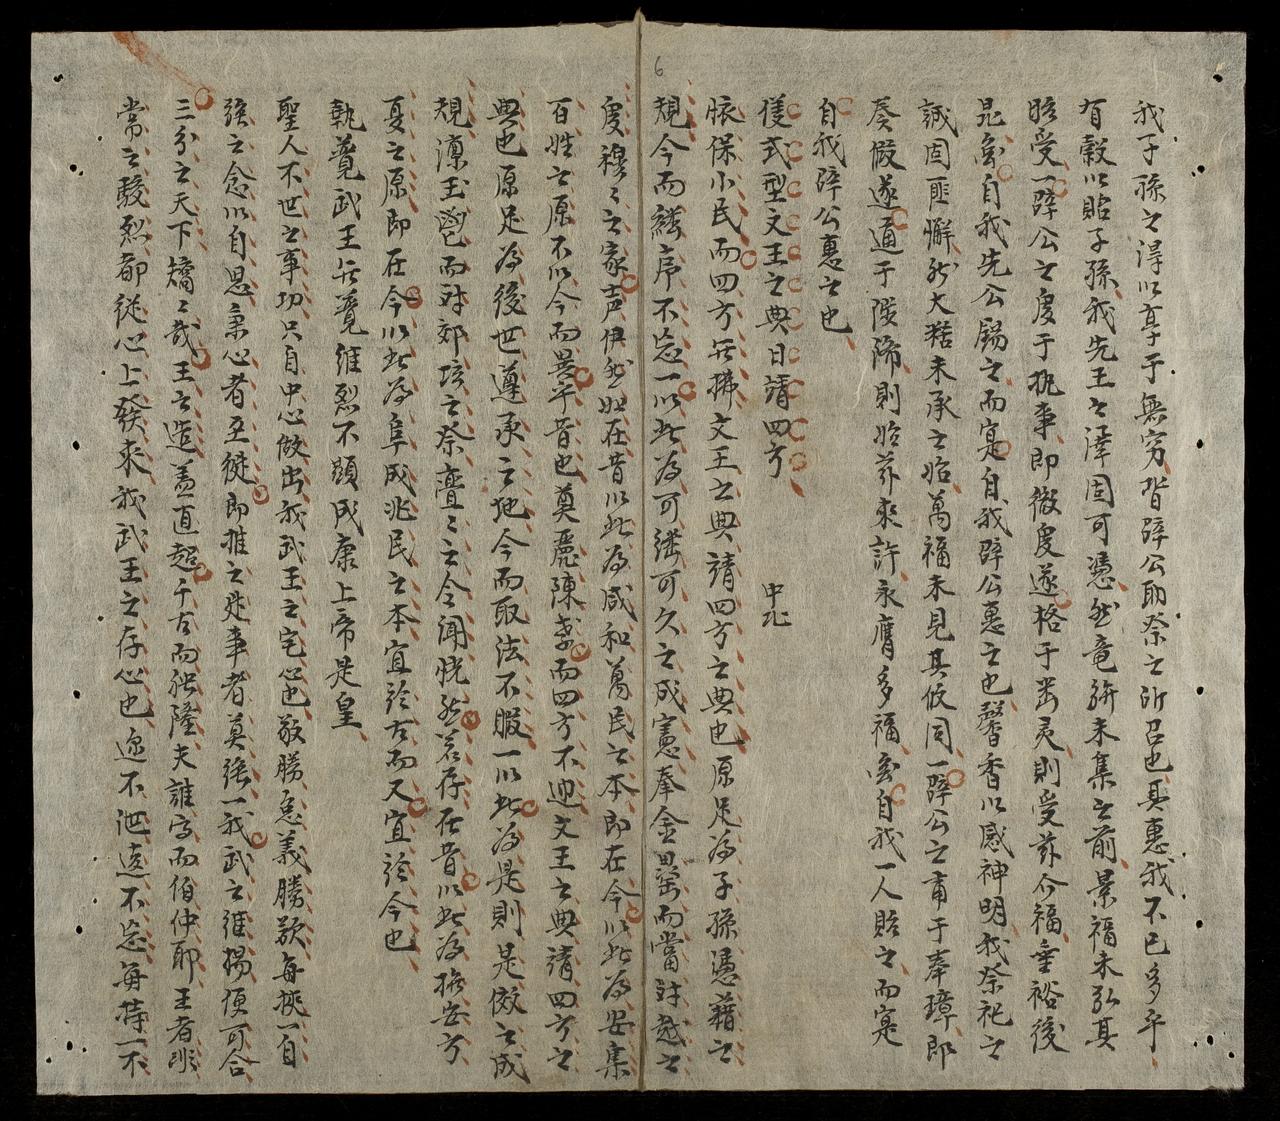 我子孫之淂以享于無穷皆辟公助祭之所召也其惠我不已多乎
有穀以貽子孫我先王之澤固可憑然竟斾未集之前景福未弘其
貽受一辟公之度于执事即徹度遂格于岩灵則受茲介福垂裕後
昆寔自我先公錫之而寔自我辟公惠之也馨香以感神明我祭祀之
誠固匪懈然大禧未承之始萬福未見其攸同一辟公之甫于奉璋即
奏假遂通于陟降則始茲來許永膺多福寔自我一人貽之而寔
自我辟公惠之也
儀式型文王之典日靖四方 中北
脤保小民而四方無拂文王之典靖四方之典也原足為子孫憑藉之
規今而繼序不忘一以此為可繼可久之成憲奉金罍而當對越之
度穆々之家声伊然如在昔以此為咸和萬民之本即在今以此為安集
百姓之原不以今而異乎昔也奠麗陳教而四方不迎文王之典靖四方之
典也原足為後世遵承之地今而取法不暇一以此為是則是傚之成
規凜玉鬯而對郊垓之祭亹々之令聞恍然若存在昔以此為撫安方
夏之原即在今以此為阜成兆民之本宜於古而又宜於今也
執競武王無競維烈不顯成康上帝是皇
聖人不世之事功只自中心做出我武王之宅心也敬勝怠義勝欲每挑一自
強之念以自思秉心者至徒即推之延事者莫強一我武之維揚便可合
三分之天下矯々哉王之造盖直超千古而独隆夫誰与而伯仲耶王者非
常之駿烈都從心上發來我武王之存心也迩不泄遠不忘每持一不